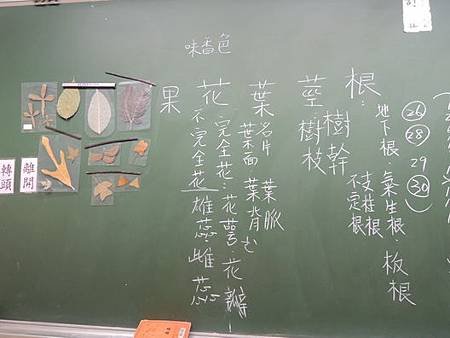 26
28
29
30
根：地下根 氣生根：板根
支柱根
不定根
莖：樹幹
樹枝
葉：名片 葉脈
葉面 葉背
花：完全花：花萼 花瓣
不完全花 雄蕊 雌蕊
果
味香色
離開
轉頭